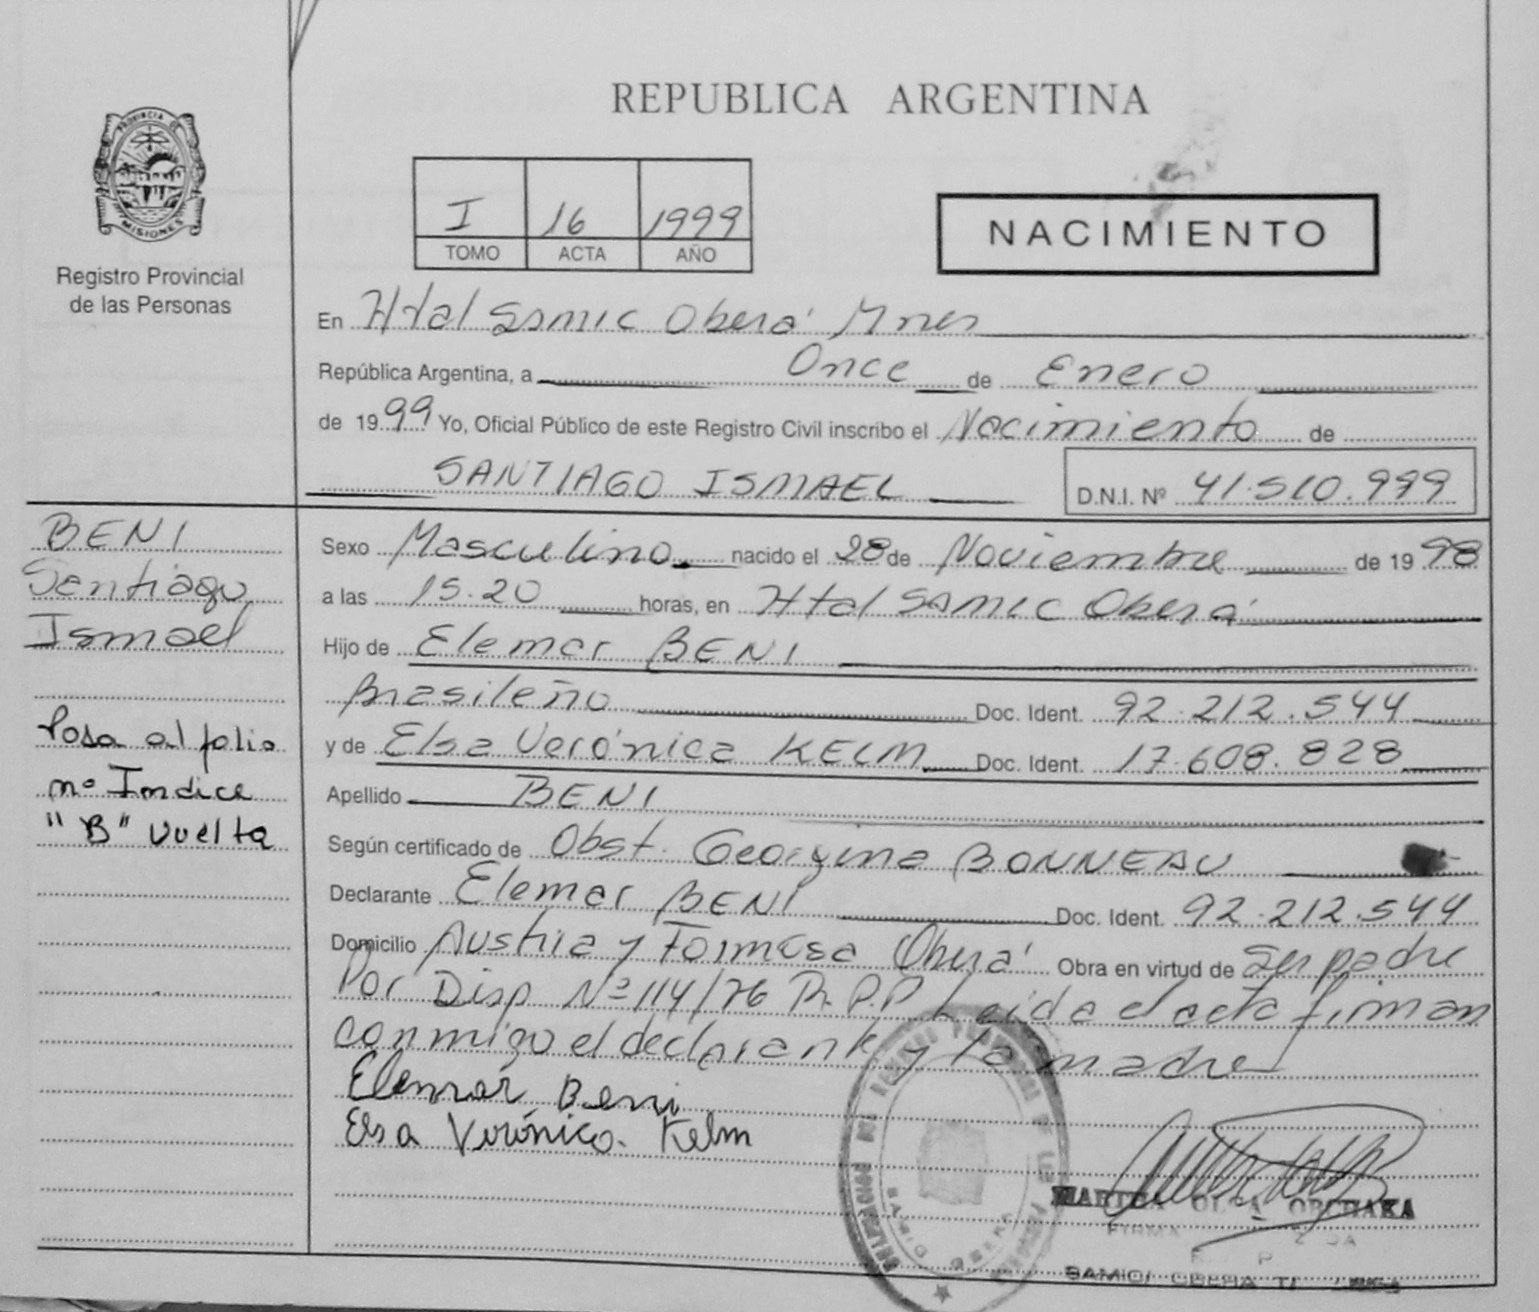 REPUBLICA ARGENTINA
PROVINCIA DE
MISIONES
Registro Provincial
de las Personas
I 16 1999
TOMO ACTA AÑO
NACIMIENTO
En Htal Samic Oberá Mnes
República Argentina, a Once de Enero
de 1999 Yo, Oficial Público de este Registro Civil inscribo el Nacimiento de
SANTIAGO ISMAEL D.N.I. Nº 41.510.999
BENI
Santiago
Ismael
Pasa al folio
nº Indice
"B" Vuelta
Sexo Masculino nacido el 28 de Noviembre de 1998
a las 15.20 horas, en Htal Samic Oberá
Hijo de Elemar BENI
Brasileño Doc. Ident. 92.212.544
y de Elsa Verónica KELM Doc. Ident. 17.608.828
Apellido BENI
Según certificado de Obst. Georgina BONNEAU
Declarante Elemar BENI Doc. Ident. 92.212.544
Domicilio Austria y Formosa Oberá Obra en virtud de ser padre
Por Disp Nº 114/76 R.P.P Leida el acta firman
conmigo el declarante y la madre
Elemar Beni
Elsa Verónica Kelm
MARTHA OLGA ORCHAKA
FIRMA